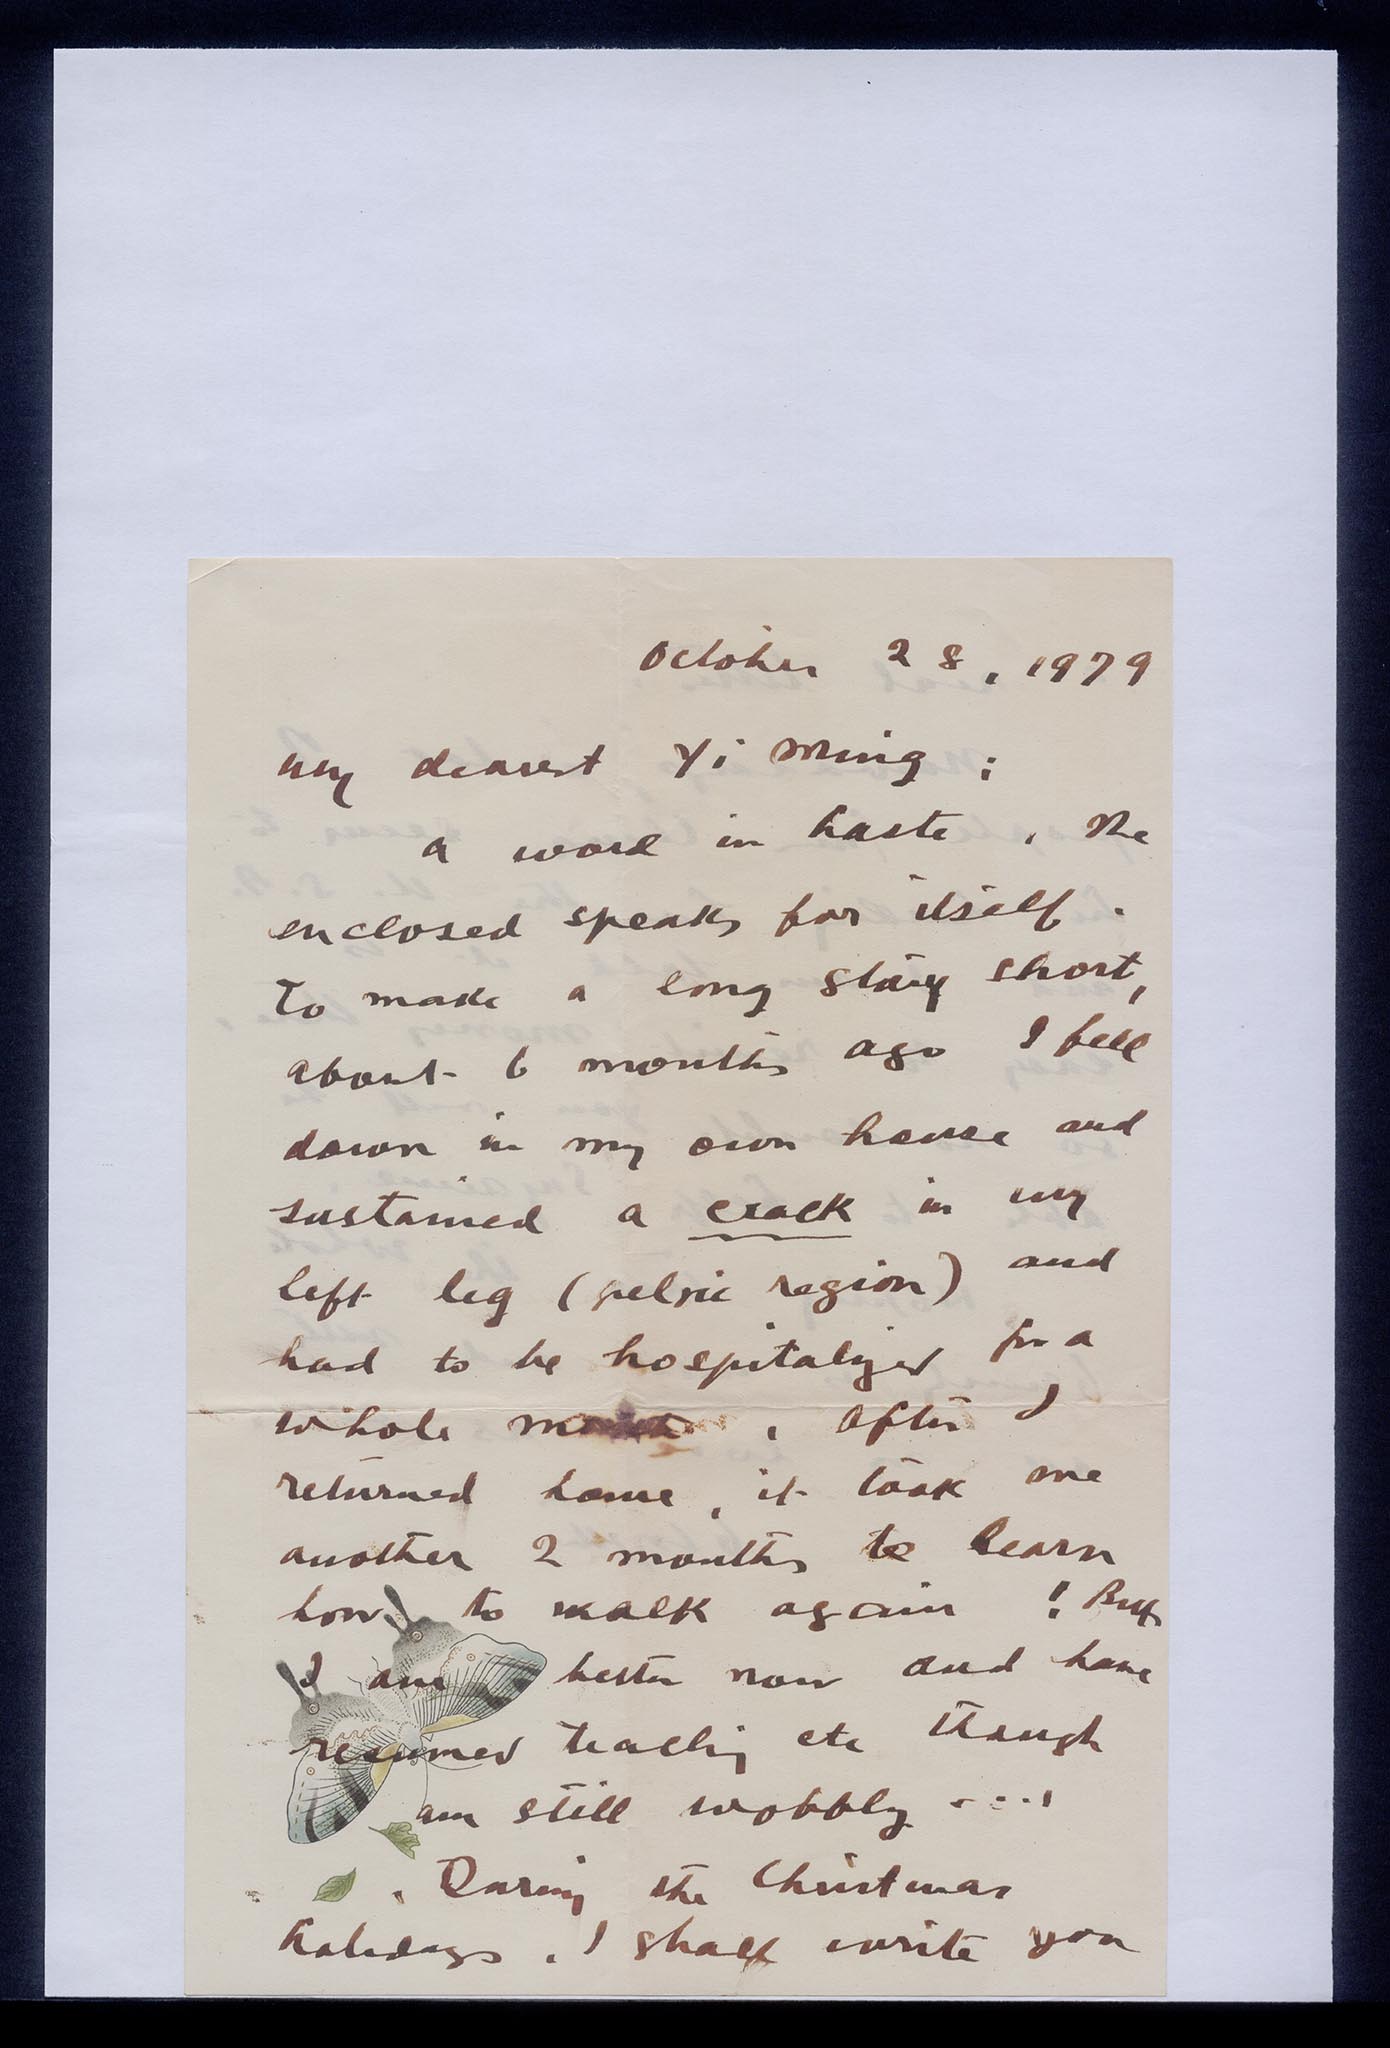 October 28, 1979
My dearest Yi Ming:
A word in haste. The
enclosed speaks for itself.
To make a long story short,
about 6 months ago I fell
down in my own house and
sustained a crack in my
left leg (pelvic region) and
had to be hospitalized for a
whole month. After I
returned home, it took me
another 2 months to learn
how to walk again! But
I am better now and have
resumed teaching etc though
am still wobbly ....
During the Christmas
holidays, I shall write you